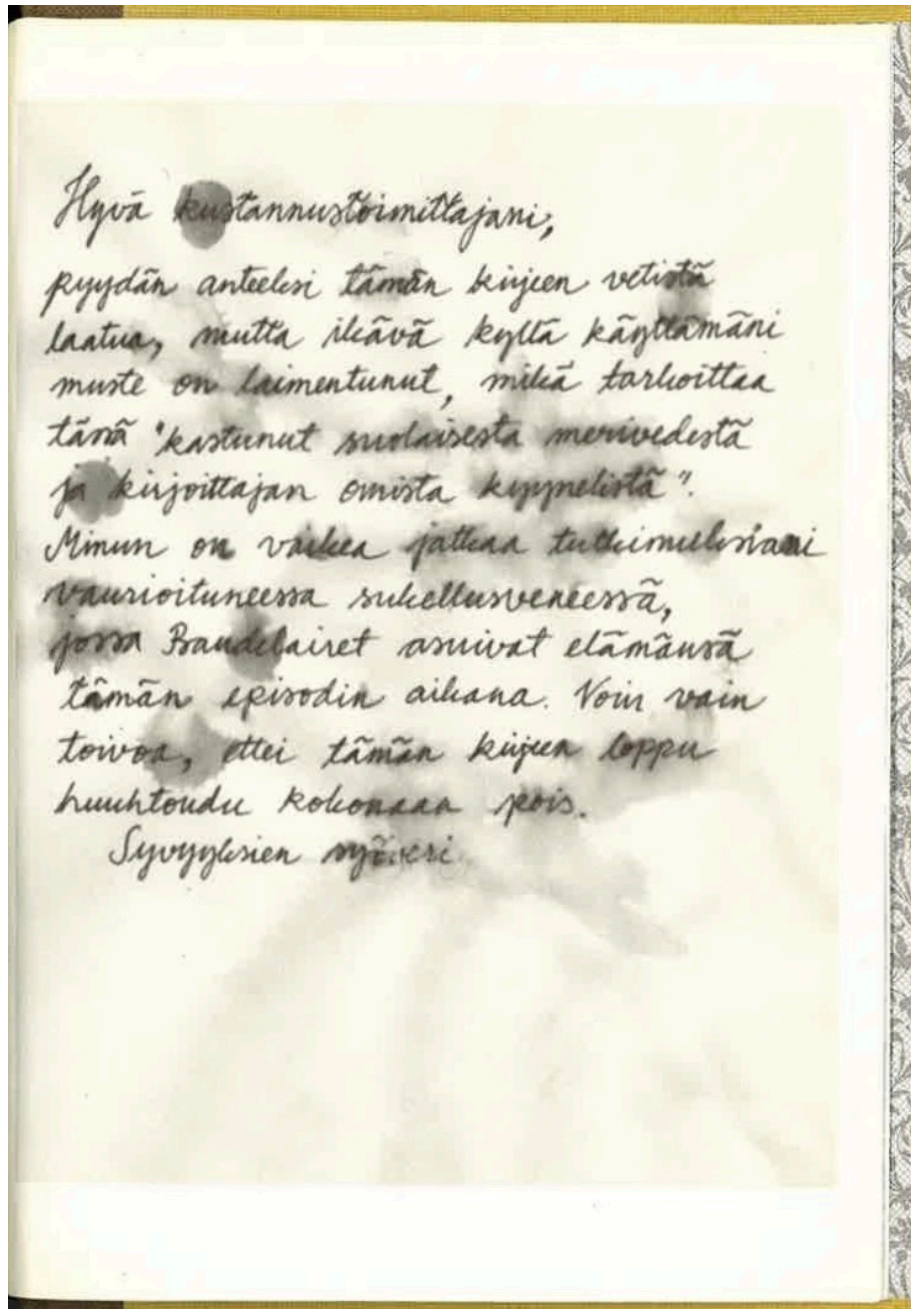 Hyvä kustannustoimittajani,
pyydän anteeksi tämän kirjeen vetistä
laatua, mutta ikävä kyllä käyttämäni
muste on laimentunut, mikä tarkoittaa
tässä "kastunut suolaisesta merivedestä
ja kirjoittajan omista kyynelistä".
Minun on vaikea jatkaa tutkimuksiani
vaurioituneessa sukellusveneessä,
jossa Baudelairet asuivat elämänsä
tämän episodin aikana. Voin vain
toivoa, ettei tämän kirjeen loppu
huuhtoudu kokonaan pois.
Syvyyksien syöveri